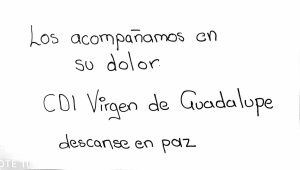 Los acompañamos en
su dolor
CDI Virgen de Guadalupe
descanse en paz